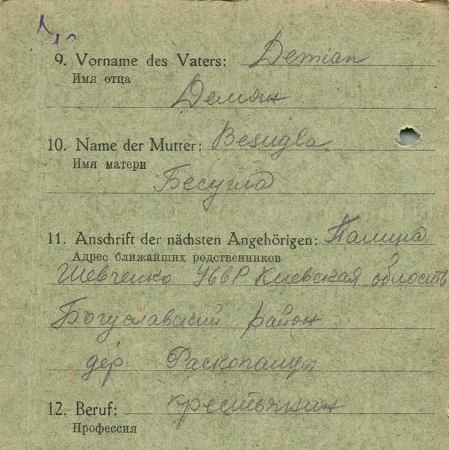 9. Vorname des Vaters: Demian
Имя отца
Демян
10. Name der Mutter: Besugla
Имя матери
Бесугла
11. Anschrift der nächsten Angehörigen: Палина
Адрес ближайших родственников
Шевченко УССР Киевская область
Богуславский район
дер. Раскопанцы
12. Beruf: крестьянин
Профессия